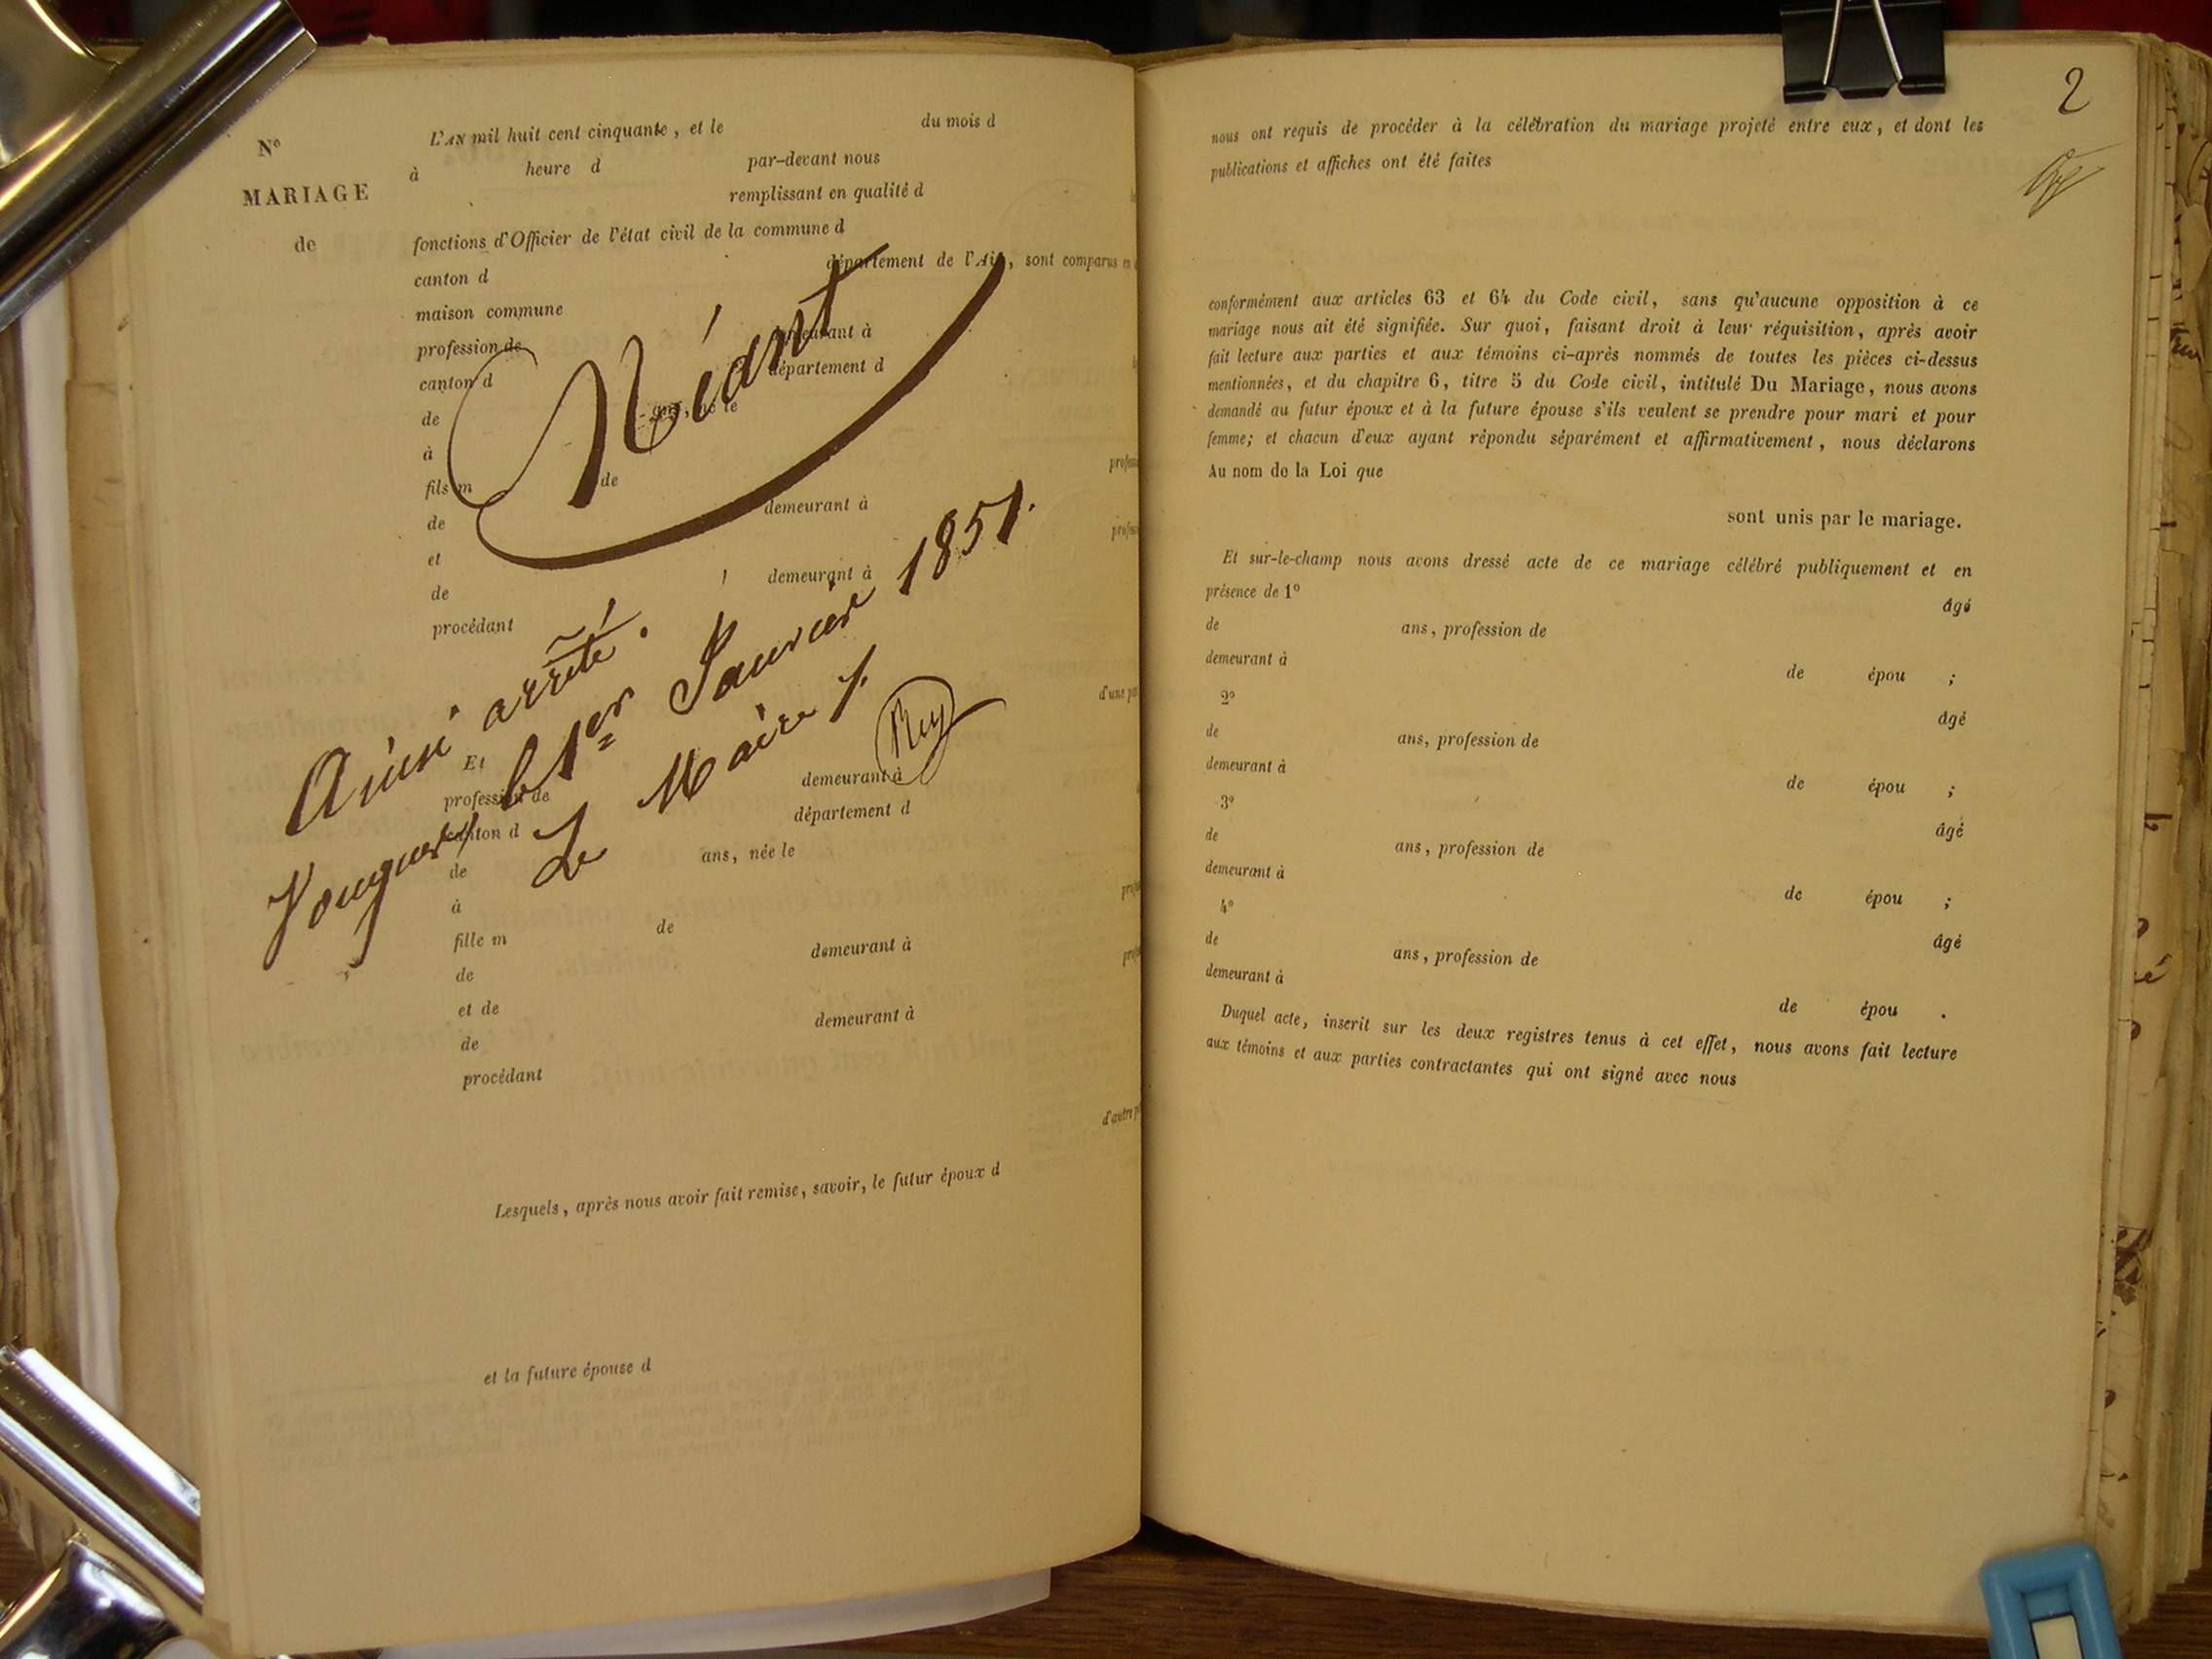 Nº
MARIAGE
de
L'AN mil huit cent cinquante, et le du mois d
à heure d par-devant nous
remplissant en qualité d
fonctions d'Officier de l'état civil de la commune d
canton d département de l'Ain, sont comparus en
maison commune
profession de demeurant à
canton d département d
de ans, né le
à
fils m de
de demeurant à
et
de demeurant à
procédant
Néant
Ainsi arrêté.
Vougnes le 1er Janvier 1851.
Le Maire
Rey
profes
profes
d'une pa
Et demeurant à
profession de
canton d département d
de ans, née le
à
fille m de
de demeurant à
et de
de demeurant à
procédant
d'autre p
Lesquels, après nous avoir fait remise, savoir, le futur époux d
et la future épouse d
2
nous ont requis de procéder à la célébration du mariage projeté entre eux, et dont les
publications et affiches ont été faites
conformément aux articles 63 et 64 du Code civil, sans qu'aucune opposition à ce
mariage nous ait été signifiée. Sur quoi, faisant droit à leur réquisition, après avoir
fait lecture aux parties et aux témoins ci-après nommés de toutes les pièces ci-dessus
mentionnées, et du chapitre 6, titre 5 du Code civil, intitulé Du Mariage, nous avons
demandé au futur époux et à la future épouse s'ils veulent se prendre pour mari et pour
femme; et chacun d'eux ayant répondu séparément et affirmativement, nous déclarons
Au nom de la Loi que
sont unis par le mariage.
Et sur-le-champ nous avons dressé acte de ce mariage célébré publiquement et en
présence de 1º âgé
de ans, profession de
demeurant à de épou ;
2º âgé
de ans, profession de
demeurant à de épou ;
3º âgé
de ans, profession de
demeurant à de épou ;
4º âgé
de ans, profession de
demeurant à de épou .
Duquel acte, inscrit sur les deux registres tenus à cet effet, nous avons fait lecture
aux témoins et aux parties contractantes qui ont signé avec nous